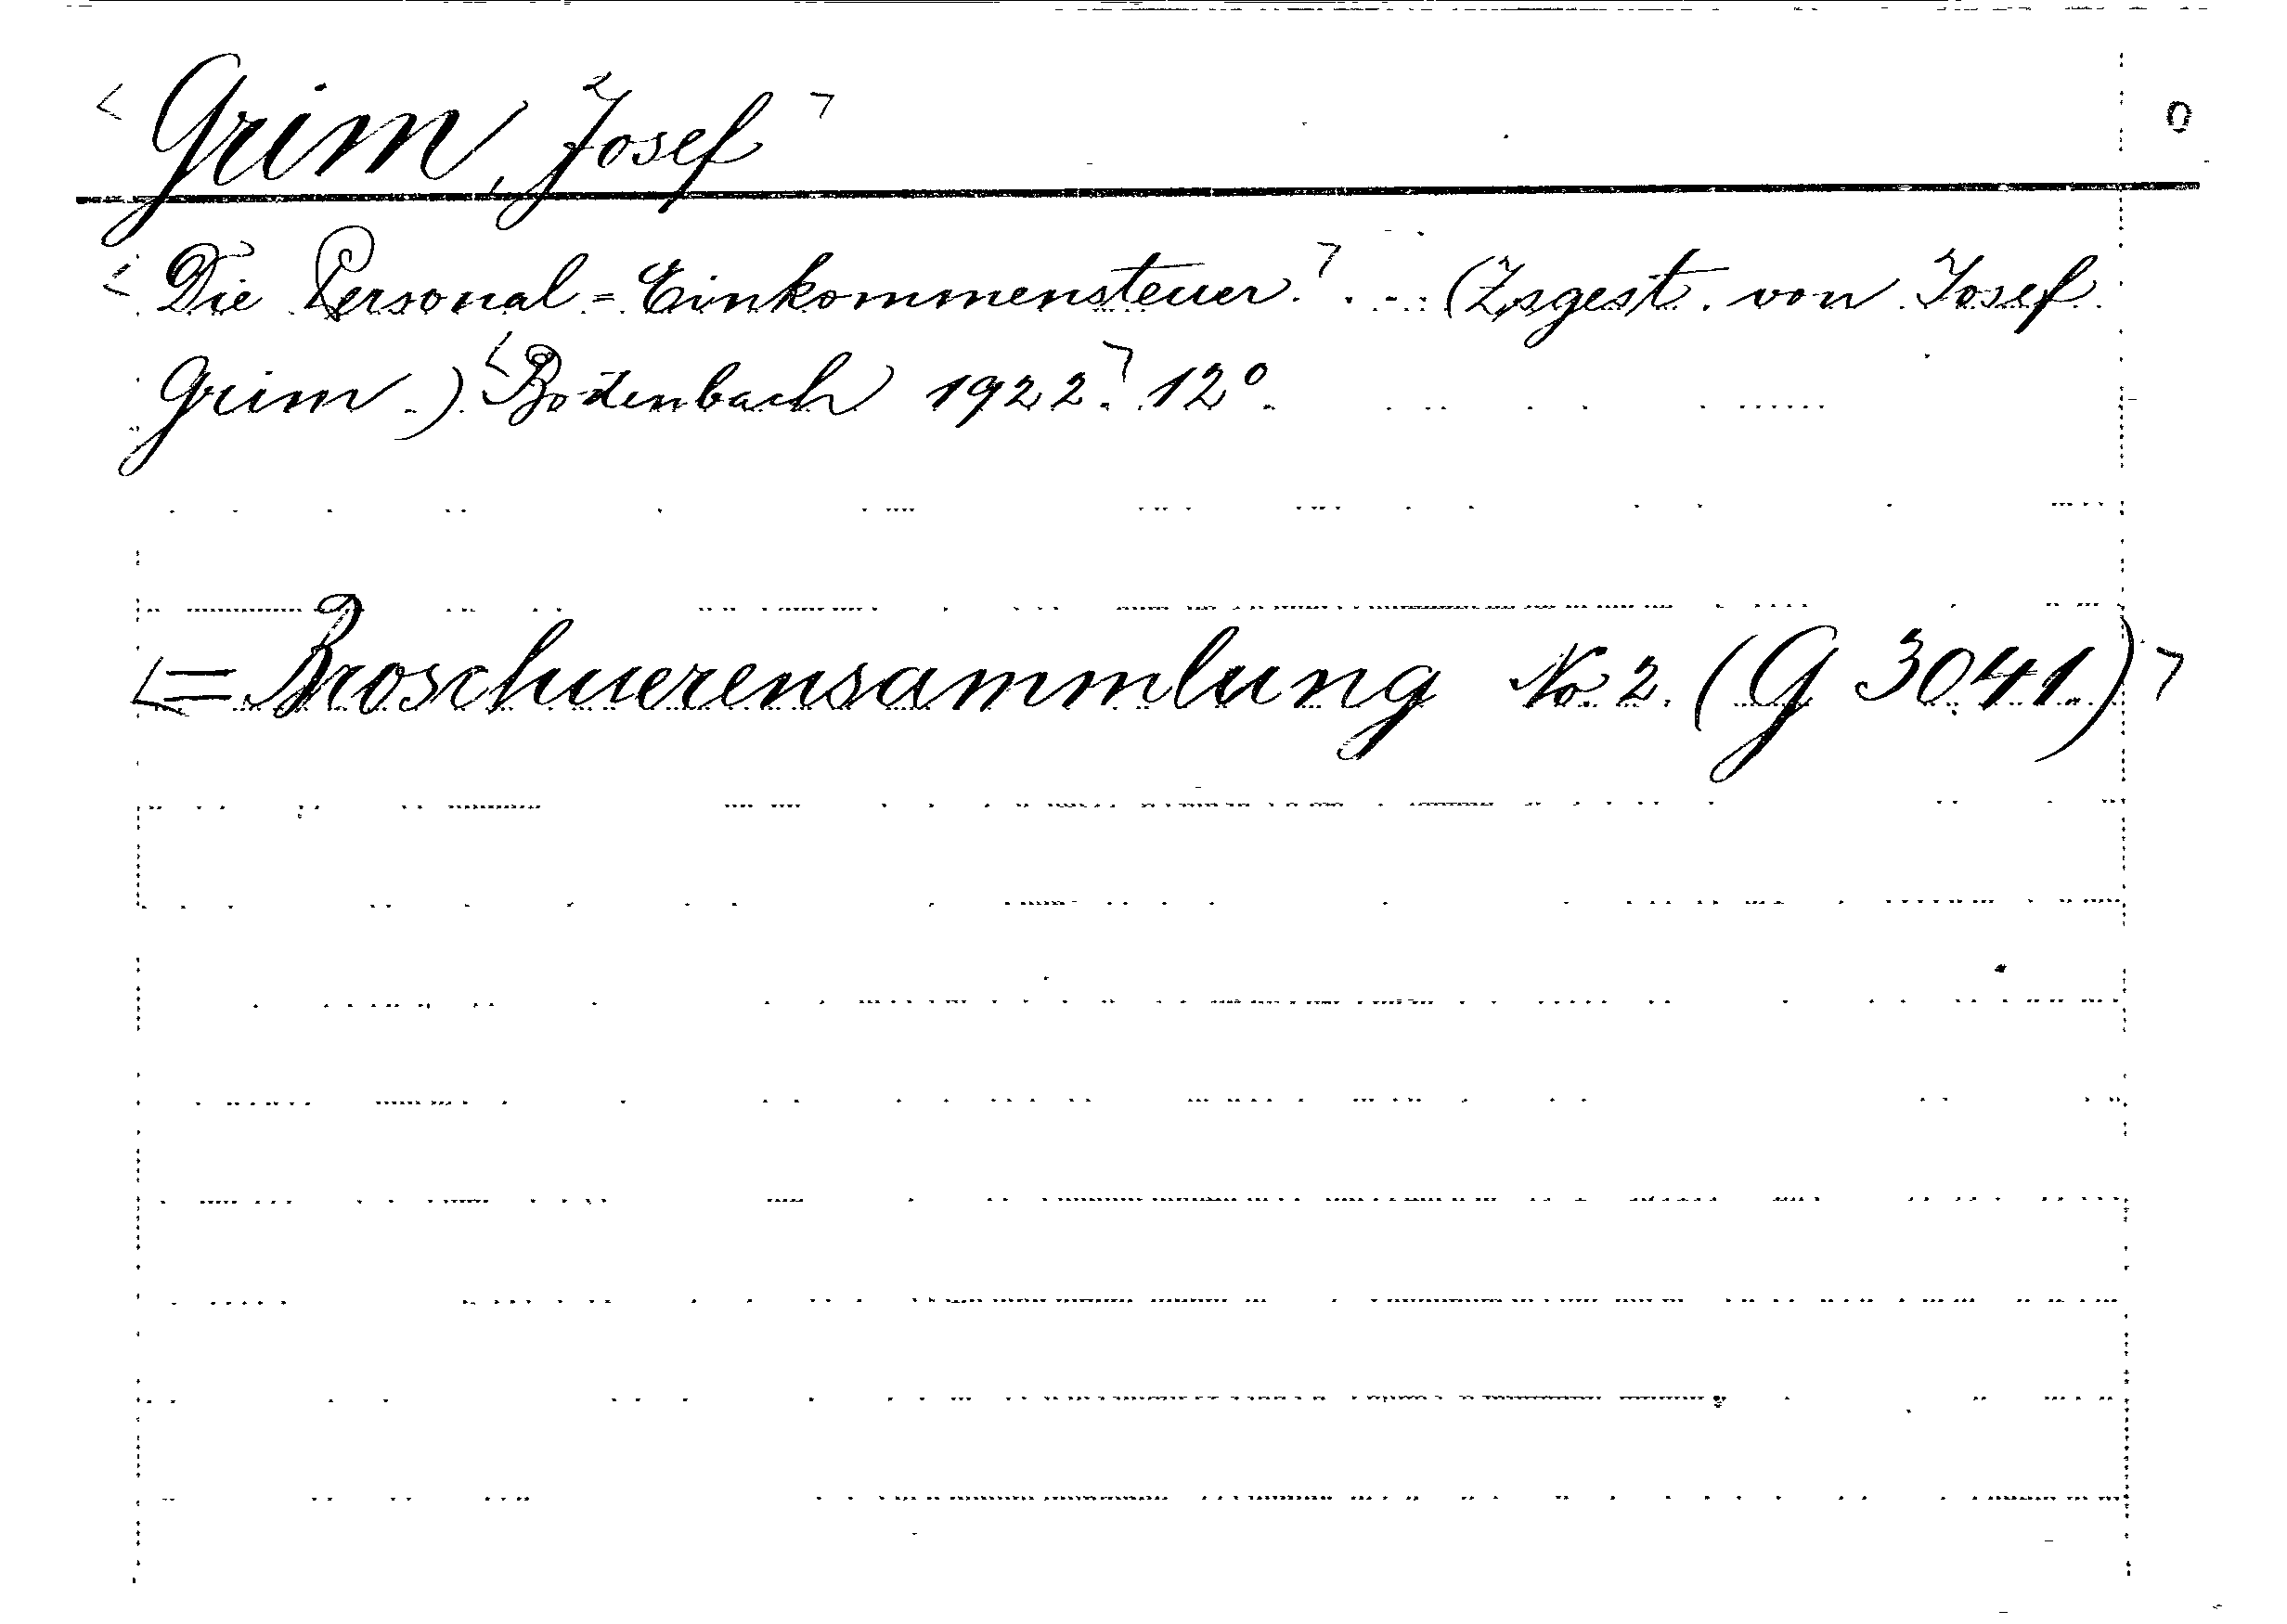 < Grim, Josef ¬ 0
< Die Personal=Einkommensteuer. ¬ ... (Zsgest. von Josef
Grim.) < Bodenbach 1922. ¬ 12°.
< = Broschuerensammlung No. 2. (G 3041.) ¬